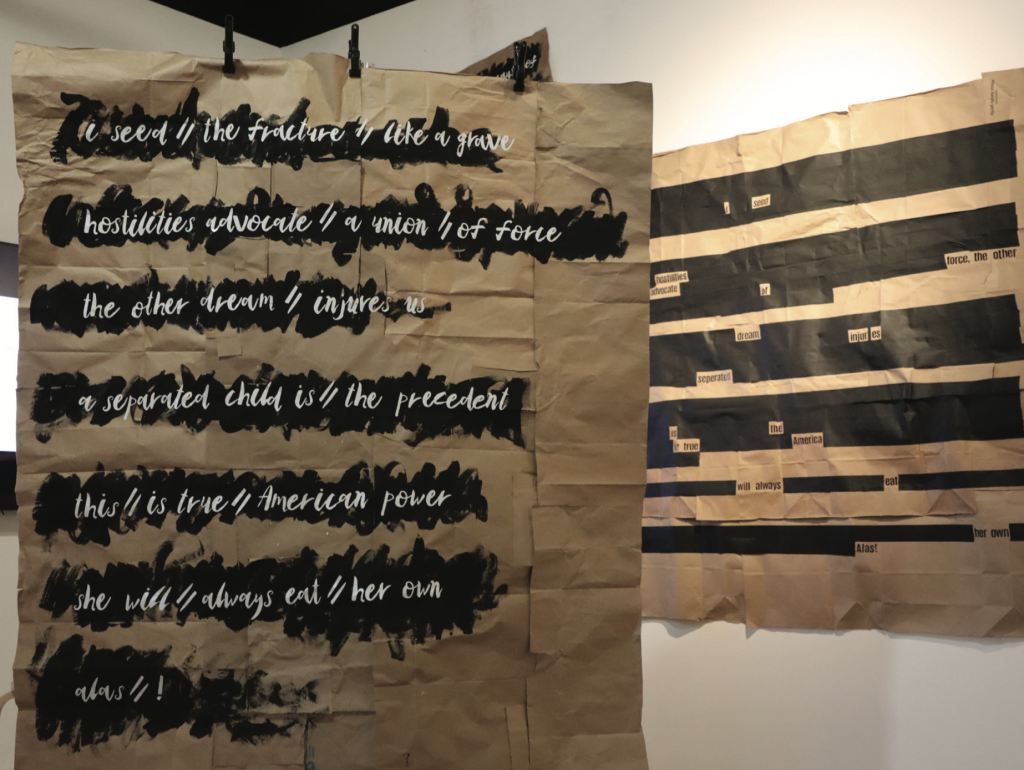 i seed // the fracture // like a grave
hostilities advocate // a union // of force
the other dream // injures us
a separated child is // the precedent
this // is true // American power
she will // always eat // her own
alas // !
of
i seed
force, the other
hostilities
advocate of
dream injur es
seperated
is the America
is true
will always eat
her own
Alas!